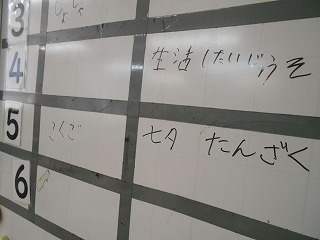 3 しょしゃ
4 生活 (たいじゅうそ
5 こくご 七夕 たんざく
6